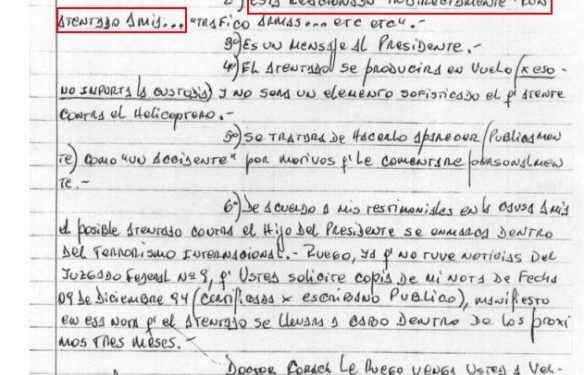 2º) Está relacionado indirectamente con
atentado AMIA... "Trafico armas... etc etc".-
3º) Es un mensaje al Presidente.-
4º) El atentado se producira en vuelo (x eso
no importa la custodia) y no sera un elemento sofisticado el q' atente
contra el Helicoptero.-
5º) Se tratara de hacerlo aparecer (publicamen
te) como "un accidente" por motivos q' le comentare personalmen
te.-
6º) De acuerdo a mis testimoniales en la causa AMIA
el posible atentado contra el Hijo del Presidente se enmarca dentro
del terrorismo internacional.- Ruego, ya q' no tuve noticias del
Juzgado Federal Nº 9, q' Usted solicite copia de mi nota de fecha
09 de Diciembre 94 (certificada x escribano publico), manifiesto
en esa nota q' el atentado se llevara a cabo dentro de los proxi
mos tres meses.-
Doctor Corach le ruego venga Usted a